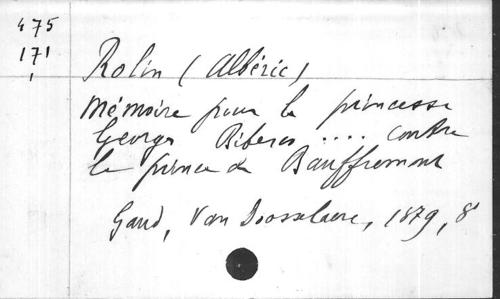 475
171
Rolin (Albéric)
Mémoire pour la princesse
Georges Bibesco .... contre
le prince de Bauffremont
Gand, Van Doosselaere, 1879, 8°